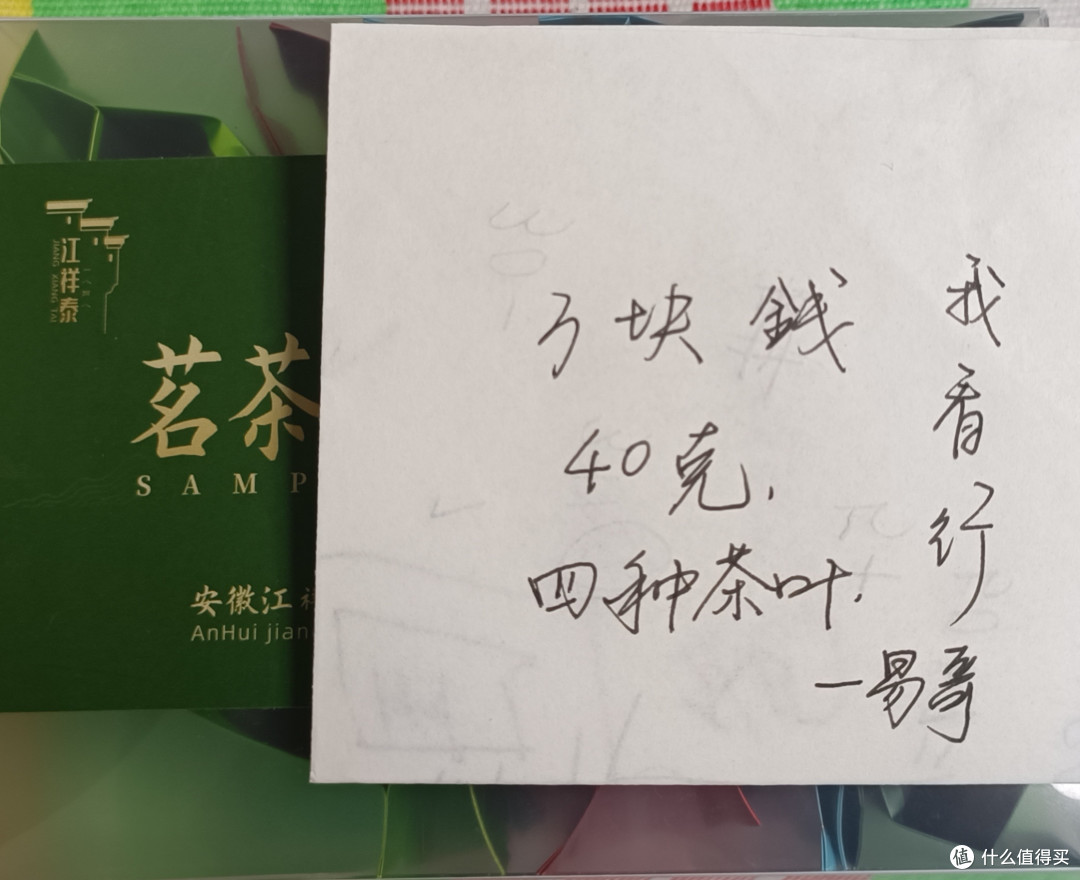 江祥泰
JIANG XIANG TAI
茗茶
SAMP
安徽江
AnHui jian
3块錢
40克.
四种茶叶.
我看行
一易哥
什么值得买